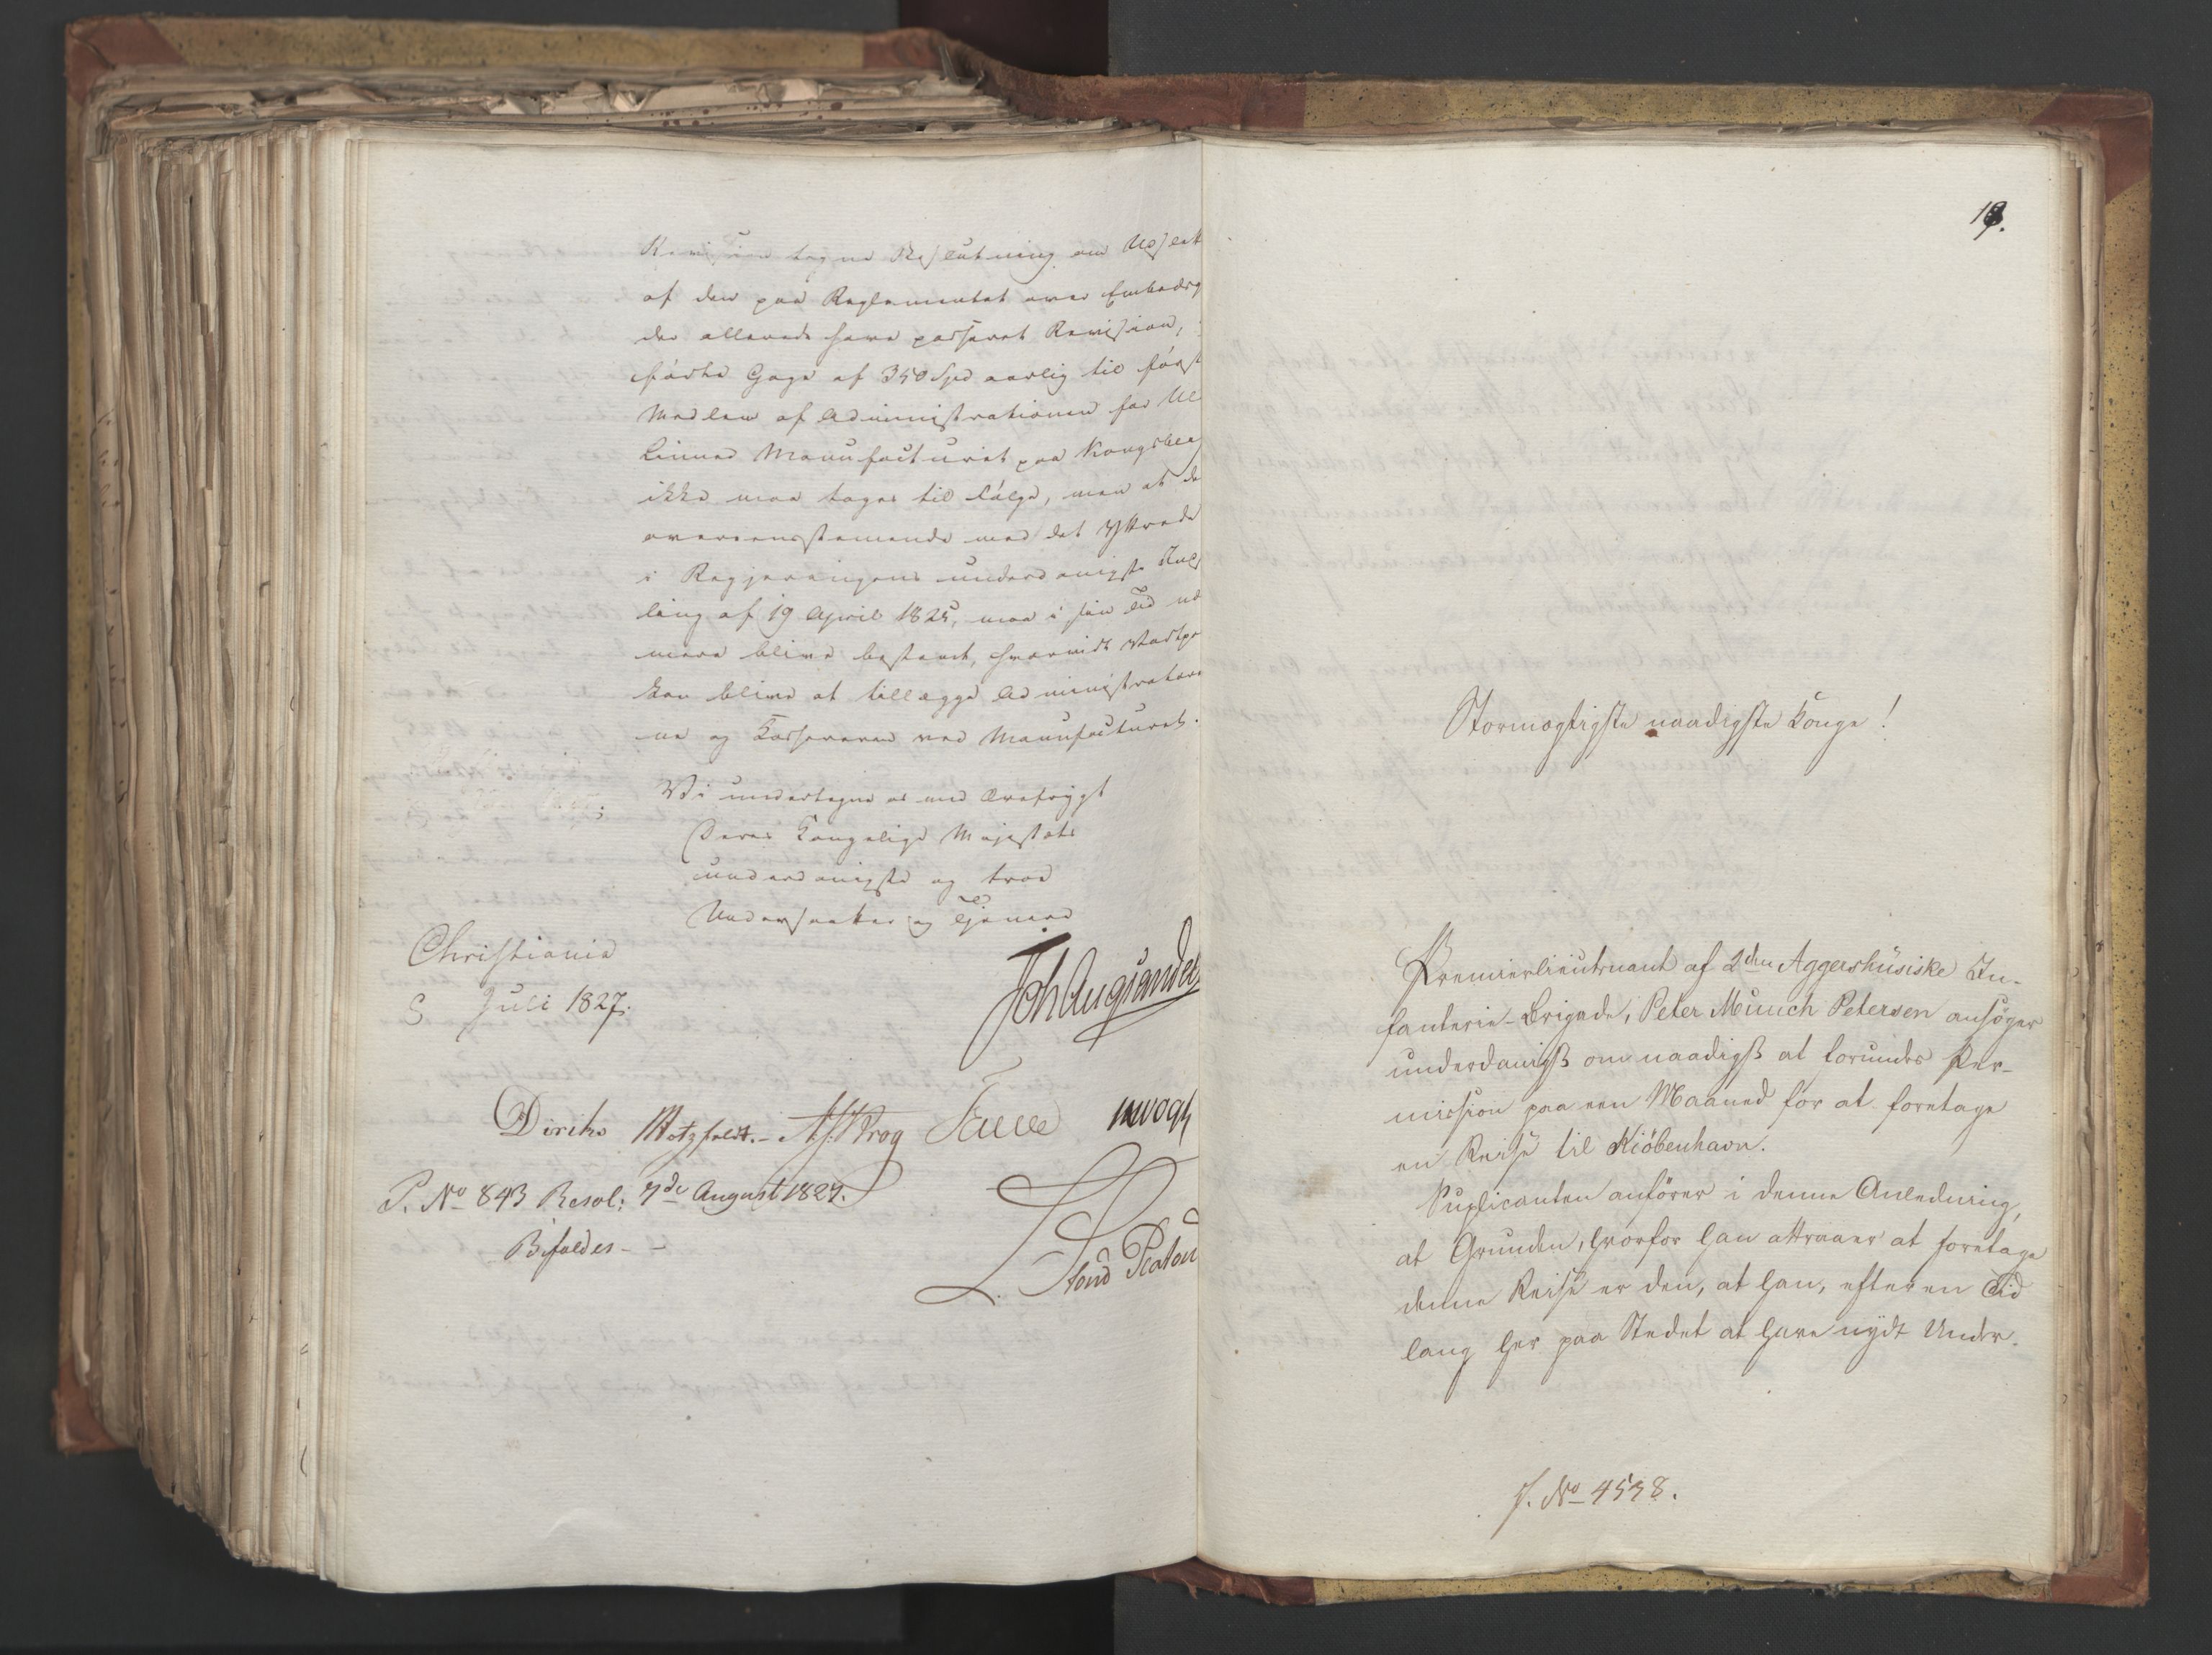 Revision tagne Beslutning om Opslatt
af den paa Reglementet over Embeds
der allerede have passeret Revision,
førte Gage af 350 Spd aarlig til først
Medlem af Administrationen for Ul
Linned Manufacturiet paa Kongsber
ikke maa tages til følge, men at de
overeensstemmende med det Yttrede
i Regjeringens underdanigste Ind
ling af 19 April 1825, maa i sin Tid næ
mere blive bestemt, hvorvidt
kan blive at tillægge Administratore
ne og Kassereren ved Manufacturet.
Vi undertegne os med Ærefrygt
Deres Kongelige Majestæts
underdanigste og troe
Undersaatter og Tjenere
Christiania
5 Juli 1827.
Joh Aug Sandels
Diriks Motzfeldt. Krog Fasting
P. No 843 Resol: 7de August 1827.
Bifaldes
Platou
19.
Stormægtigste naadigste Konge!
Premierlieutenant af 2den Aggershusiske In-
fanterie-Brigade, Peter Munch Petersen ansøger
underdanigst om naadigst at forundes Per-
mission paa een Maaned for at foretage
en Reise til Kiöbenhavn.
Suplicanten anfører i denne Anledning,
at Grunden, hvorfor han attraaer at foretage
denne Reise er den, at han, efter en Tid
lang her paa Stedet at have nydt Under-
J. No 4538.